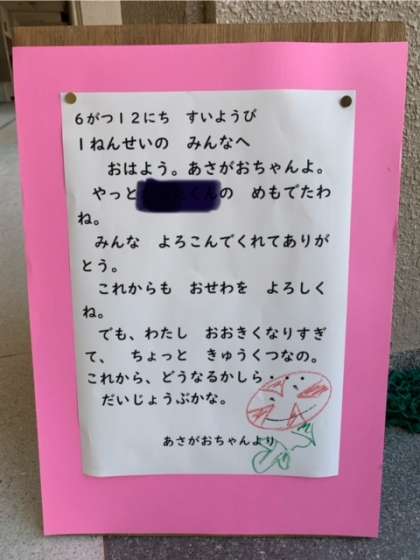 6がつ12にち　すいようび
1ねんせいの　みんなへ
おはよう。あさがおちゃんよ。
やっと　くんの　めもでたわ
ね。
みんな　よろこんでくれてありが
とう。
これからも　おせわを　よろしく
ね。
でも、わたし　おおきくなりすぎ
て、　ちょっと　きゅうくつなの。
これから、どうなるかしら・・・
だいじょうぶかな。
あさがおちゃんより